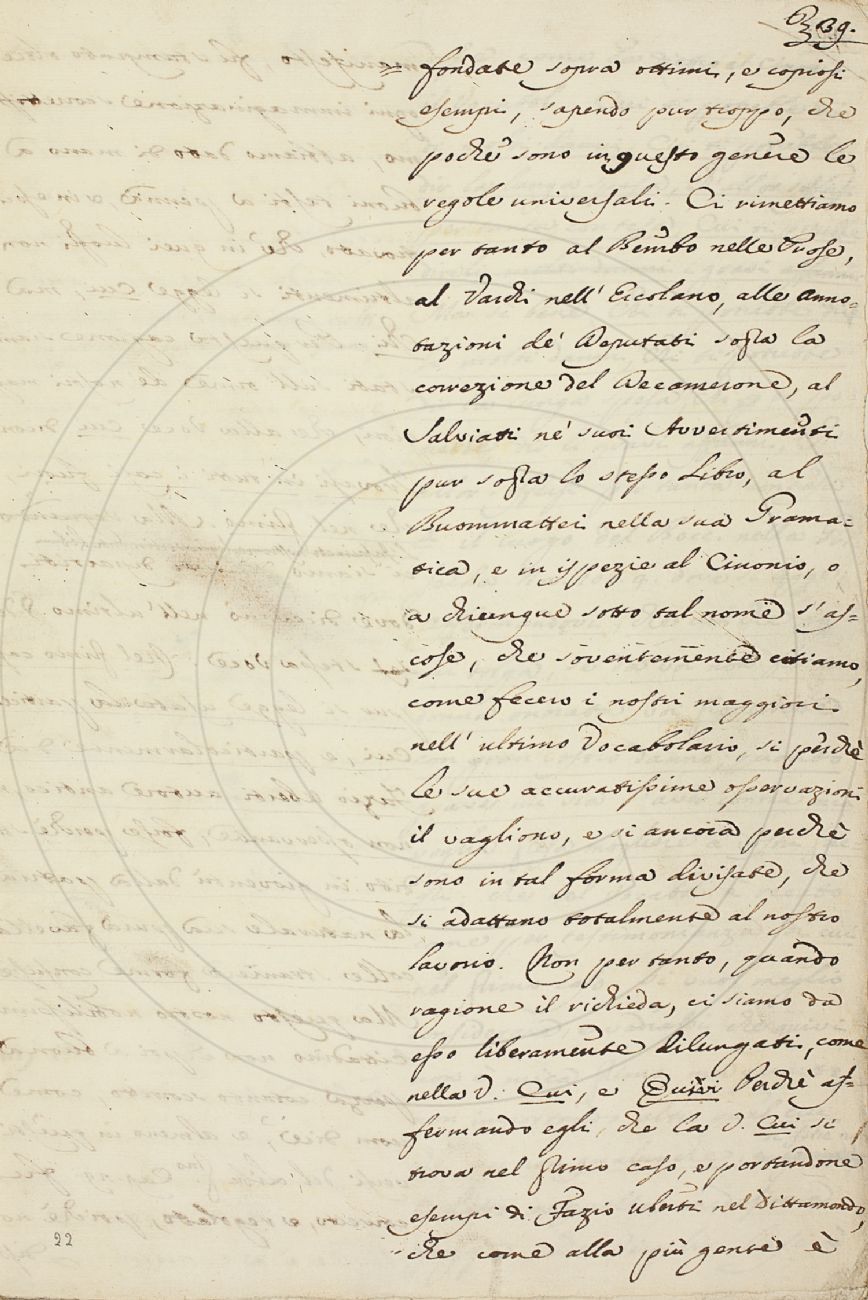 339.
= fondate sopra ottimi, e copiosi
esempi, sapendo pur troppo, che
poche sono in questo genere le
regole universali. Ci rimettiamo
per tanto al Bembo nelle Prose,
al Varchi nell' Ercolano, alle anno=
tazioni de' Deputati sopra la
correzione del Decamerone, al
Salviati ne' suoi Avvertimenti
pur sopra lo stesso Libro, al
Buommattei nella sua Grama=
tica, e in ispezie al Cinonio, o
a chiunque sotto tal nome s' as=
cose, che soventemente citiamo,
come fecero i nostri maggiori
nell' ultimo Vocabolario, si perchè
le sue accuratissime osservazioni
il vagliono, e si ancora perchè
sono in tal forma divisate, che
si adattano totalmente al nostro
lavorio. Non per tanto, quando
ragione il richieda, ci siamo da
esso liberamente dilungati, come
nella V. Cui, e Quivi Perchè af=
fermando egli, che la V. Cui si
trova nel primo caso, e portandone
esempi di Fazio Uberti nel Dittamondo,
che come alla più gente è
22